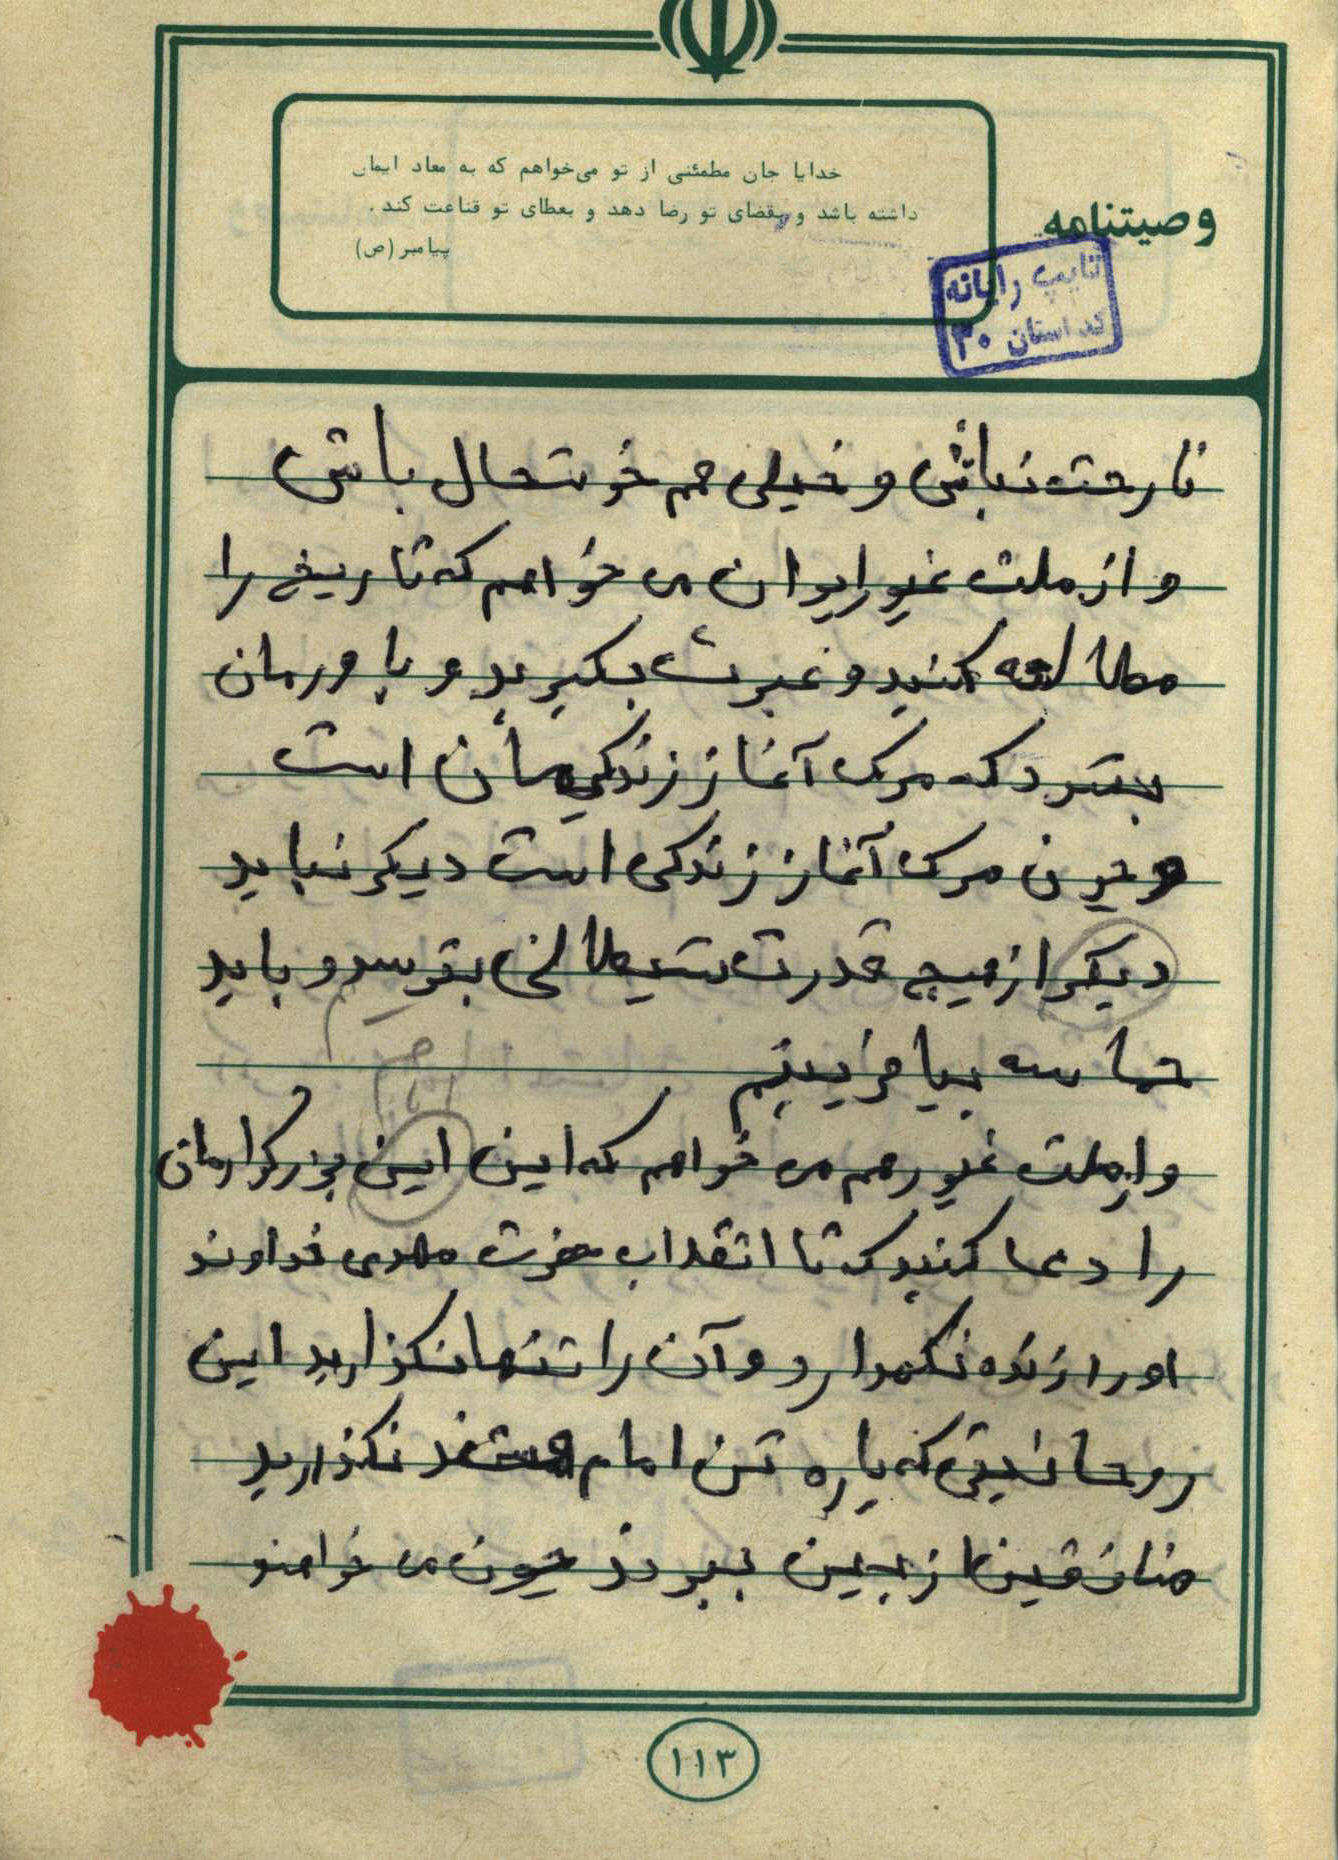 خدایا جان مطمئنی از تو می‌خواهم که به معاد ایمان
داشته باشد و بقضای تو رضا دهد و بعطای تو قناعت کند.
پیامبر (ص)
وصیتنامه
تایپ رایانه
کد استان ۳۰
نارحت نباش و خیلی هم خوشحال باش
و از ملت غیور ایران می خواهم که تاریخ را
مطالعه کنید و عبرت بگیرید و باورمان
بشود که مرگ آغاز زندگیمان است
و چون مرگ آغاز زندگی است دیگر نباید
دیگر از هیچ قدرت شیطانی بترسد و باید
حماسه بیافرینیم
و از ملت غیور هم می خواهم که این این بزرگوارمان
را دعا کنید که تا انقلاب حضرت مهدی خداوند
او را زنده نگهدارد و آن را تنها نگذارید این
روحانیتی که پاره تن امام نگذارید
منافقین از بین ببرند چون می خواهند
۱۱۳